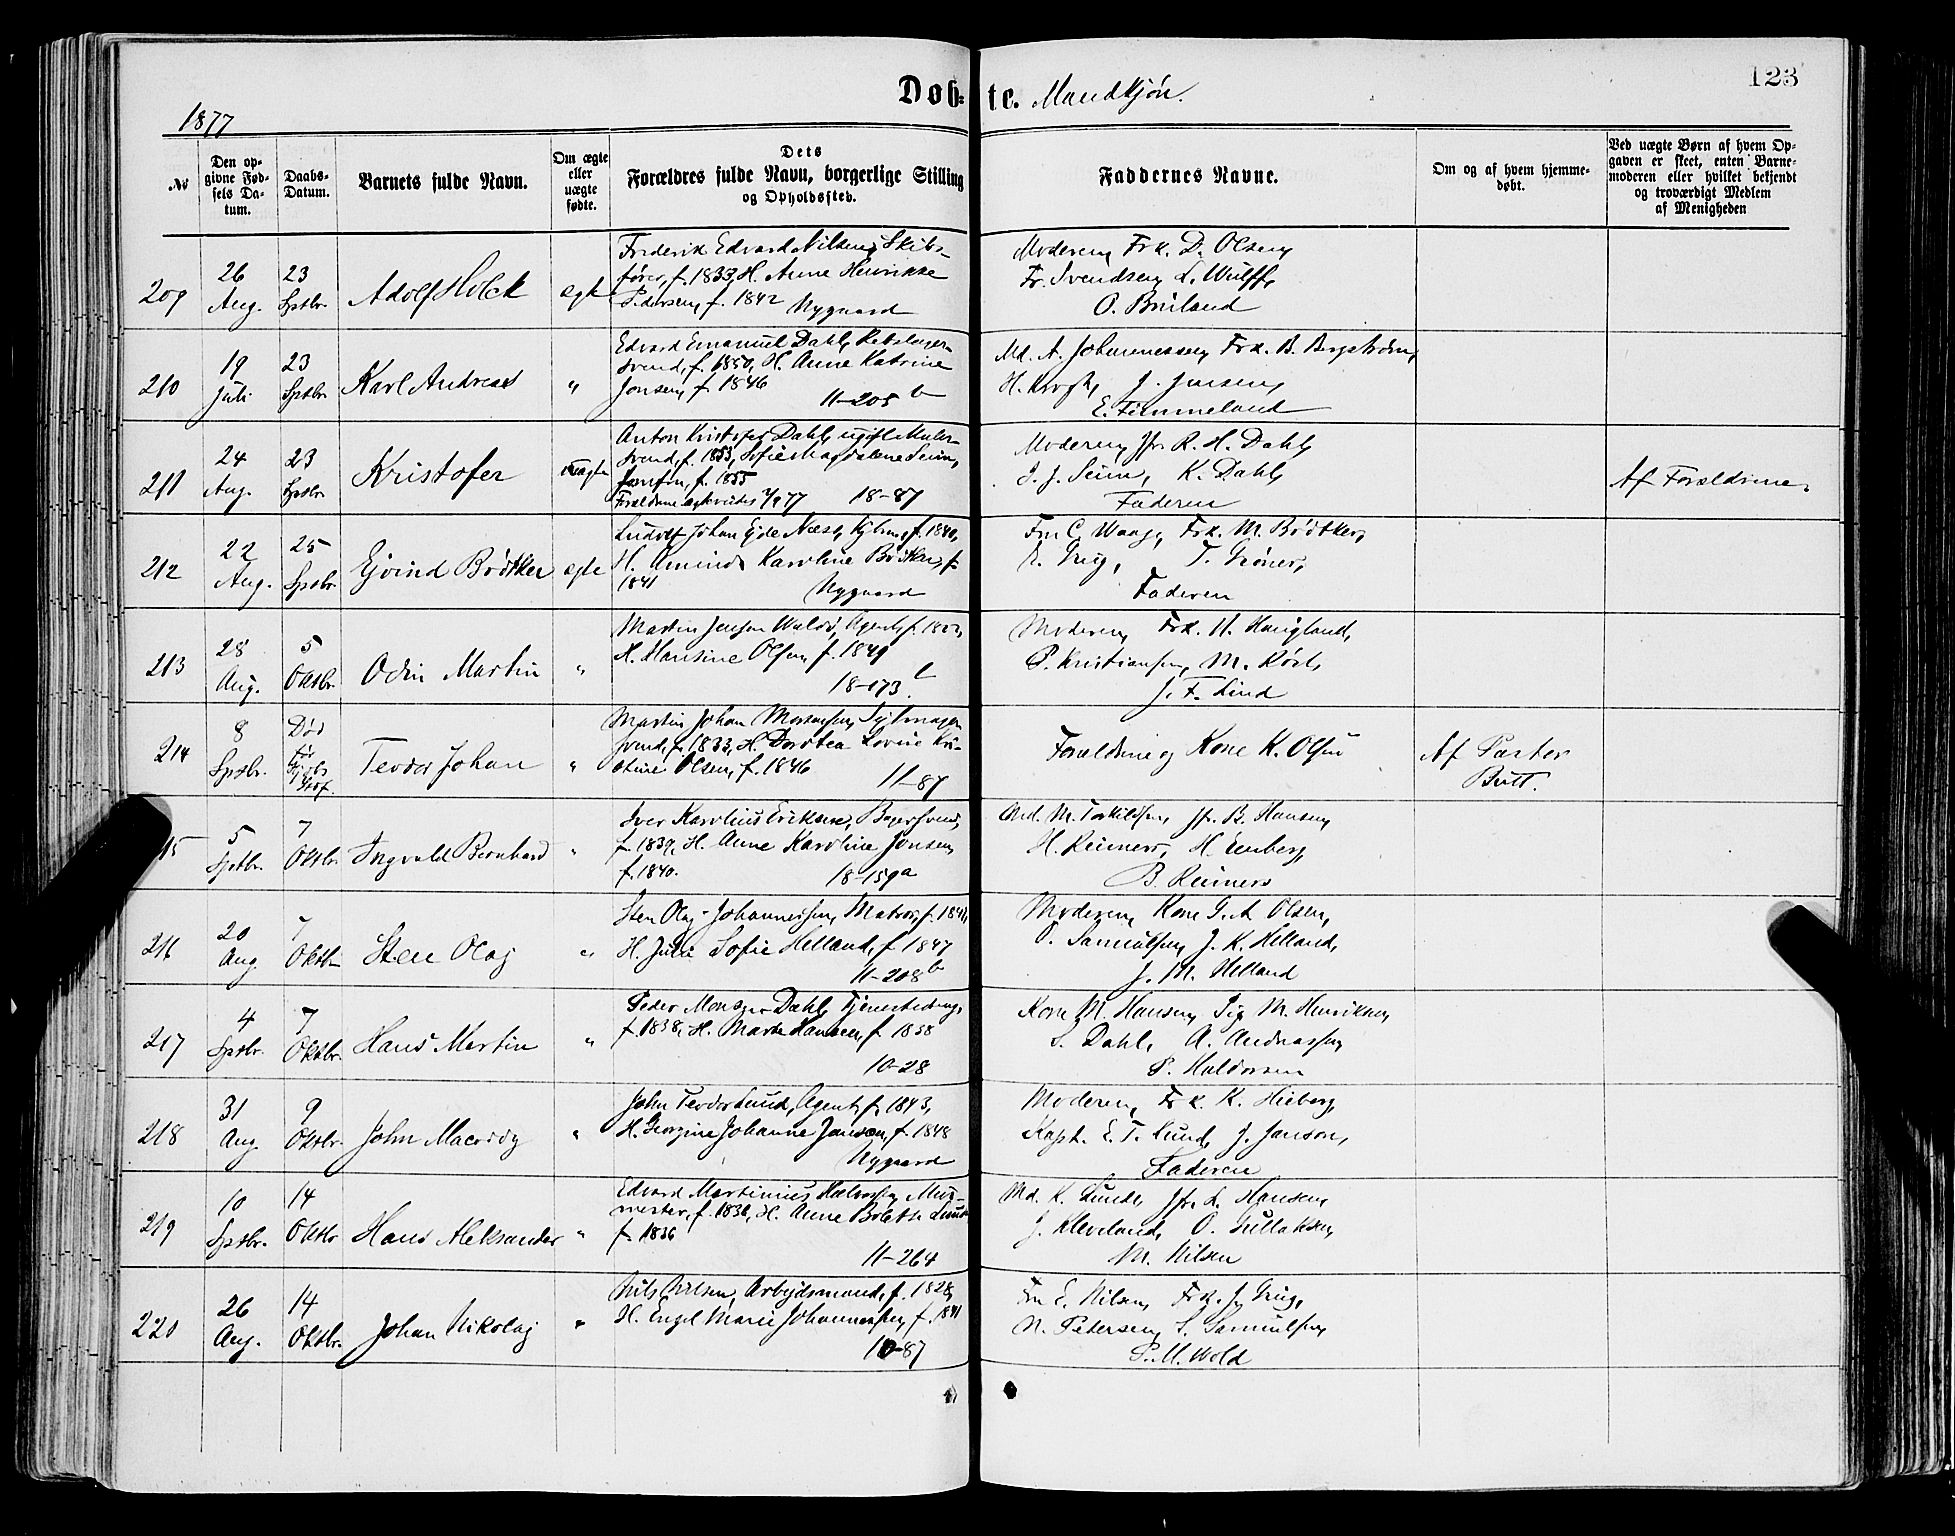 123
Døb-te. Mandkjøn.
1877
№
Den op-
givne Fød-
sels Da-
tum.
Daabs-
Datum.
Barnets fulde Navn.
Om ægte
eller
uægte
fødte.
Dets
Forældres fulde Navn, borgerlige Stilling
og Opholdssted.
Faddernes Navne.
Om og af hvem hjemme-
døbt.
Ved uægte Børn af hvem Op-
gaven er skeet, enten Barne-
moderen eller hvilket bekjendt
og troværdigt Medlem
af Menigheden
209
26
Aug.
23
Sptbr.
Adolf Holck
ægte
Frederik Edvard Nilsen, Skibs-
fører, f. 1833, H. Anne Henrikke
Pedersen, f. 1842 Nygaard
Moderen, Frk. D. Olsen,
Fr. Svendsen, L. Wulff,
O. Bruland
210
19
Juli
23
Sptbr.
Karl Andreas
"
Edvard Emanuel Dahl, Rebslager-
svend, f. 1850, H. Anne Katrine
Jonsen, f. 1846
11-205 b
Md. A. Johannessen, Frk. B. Bergstrøm,
H. Krogh, J. Jensen,
E. Fimmeland
211
24
Aug.
23
Sptbr.
Kristofer
uægte
Anton Kristofer Dahl, ugift Maler-
svend, f. 1853, Sofie Magdalene Seim,
Jomfru, f. 1855
18-87
Moderen, Jfr. R. H. Dahl,
J. J. Seim, K. Dahl,
Faderen
Af Forældrene.
212
22
Aug.
25
Sptbr.
Ejvind Brødtker
ægte
Ludolf Johan Ejde Næse, f. 1840,
H. Aminda Karoline Brødtker, f.
1841
Nygaard
Fru C. Waage, Frk. M. Brødtker,
E. Grieg, T. Grøner,
Faderen
213
28
Aug.
5
Oktbr.
Odin Martin
"
Martin Jensen Agent, f.
H. Hansine Olsen, f. 1849
18-173 b
Moderen, Frk. H. Haugland,
P. Kristiansen, M.
J. F. Lind
214
8
Sptbr.
Død
før
Teodor Johan
"
Martin Johan Mortensen,
svend, f. 1833, H. Dorotea Lovise Kri-
stine Olsen, f. 1846
11-87
Forældrene og Kone K. Olsen
Af Pastor
Butt.
15
5
Sptbr.
7
Oktbr.
Ingvald Bernhard
"
Iver Karolius Eriksen, Bagersvend,
f. 1839, H. Anne Karoline Jonsen,
f. 1840.
18-159a
Md. M. Torkildsen, Jfr. B. Hansen,
H. Reimers, H. Lenberg,
B. Reimers
216
20
Aug.
7
Oktbr.
Sten Olaj
"
Sten Olaj Johannessen, Matros, f. 1841,
H. Julie Sofie Helland, f. 1847
11-208 b
Moderen, Kone G. A. Olsen,
O. Samuelsen, J. K. Helland,
J. M. Helland
217
4
Sptbr.
7
Oktbr.
Hans Martin
"
Peder Monsen Dahl,
f. 1838, H. Marte Hansen, f. 1838
10-28
Kone M. Hansen, Pig. M. Henriksen,
S. Dahl, A. Andreassen,
P. Haldorsen
218
31
Aug.
9
Oktbr.
John Macordy
"
John Teodor Lund, Agent, f. 1843,
H. Georgine Johanne Janson, f. 1848
Nygaard
Moderen, Frk. K. Hieberg,
Kapt. E. T. Lund, J. Janson,
Faderen
219
10
Sptbr.
14
Oktbr.
Hans Aleksander
"
Edvard Martinius Halvorsen, Mur-
mester, f. 1836, H. Anne Bolette Lunde
f. 1836
11-264
Md. K. Lunde, Jfr. L. Hansen,
J. Kleveland, O. Gullaksen,
M. Nilsen
220
26
Aug.
14
Oktbr.
Johan Nikolaj
"
Nils Nilsen, Arbejdsmand, f. 1828,
H. Engel Marie Johannessen, f. 1841
10-87
Fru E. Nilsen, Frk. J. Grieg,
N. Petersen, S. Samuelsen,
P. M. Wold